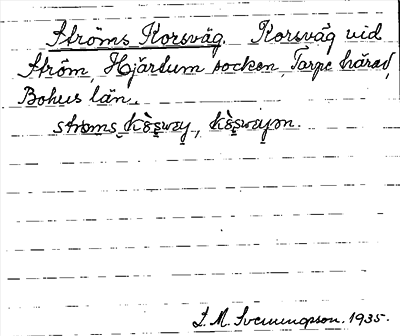 Ströms Korsväg. Korsväg vid
Ström, Hjärtum socken, Torpe härad,
Bohus län.
stroms kòswæy, kòswæyən.
L. M. Svenungsson. 1935.